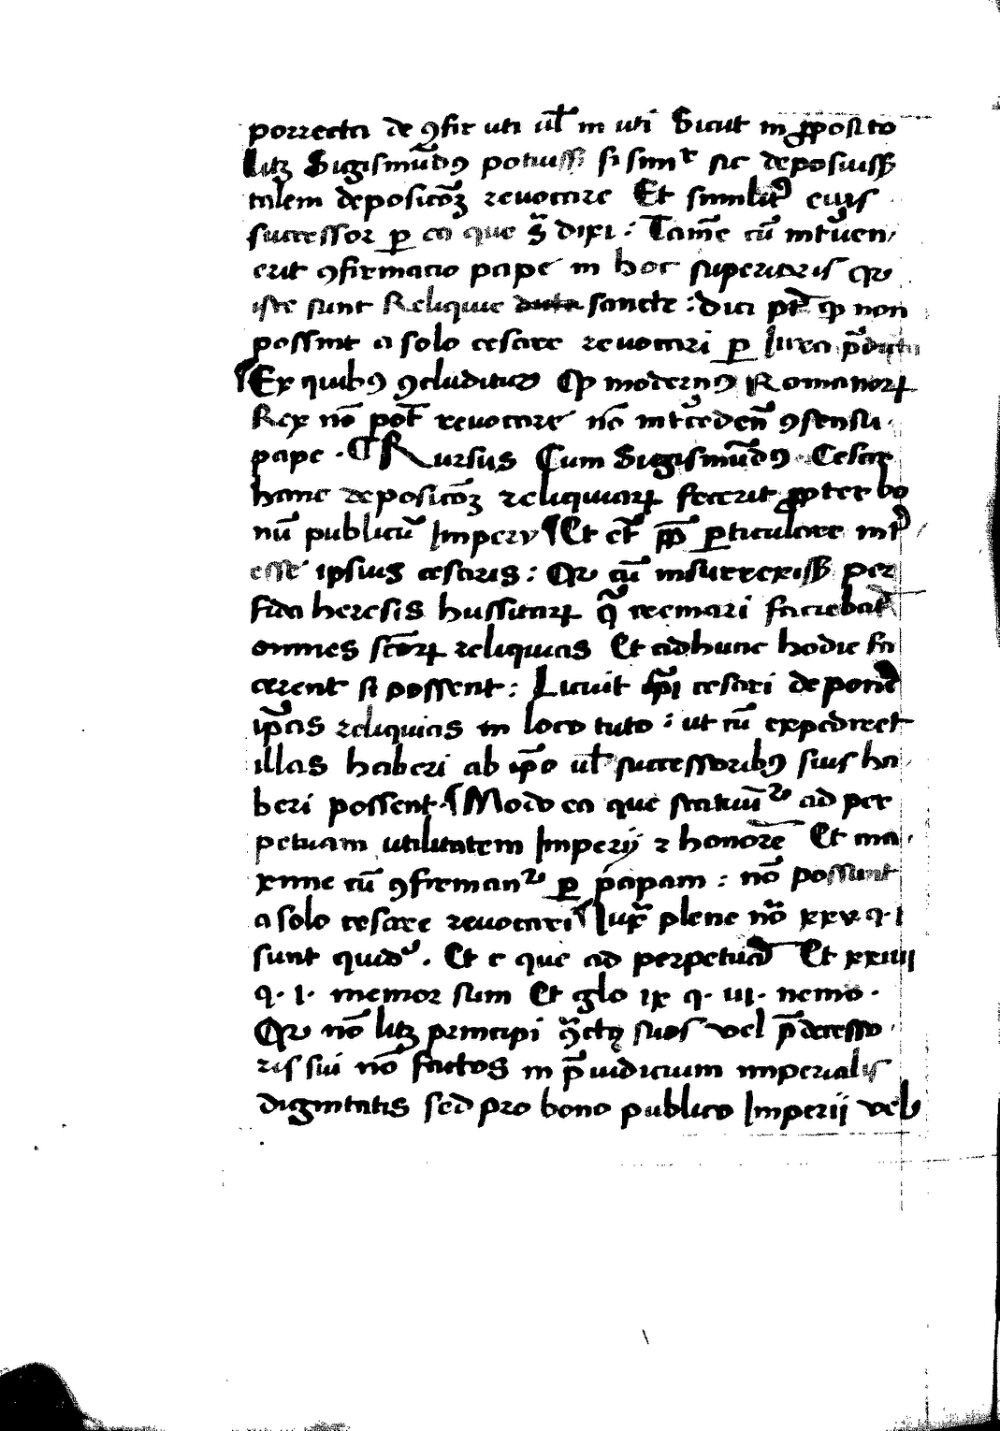 porrecta de ꝯfir uti ul̅ in uti Sicut in ꝓposito
litꝫ Sigismu̅dꝰ potuiss; si simr sic deposuiss;
talem deposico̅ꝫ reuocare Et similit᷑ eius
successor ꝑ ea que s̅ dixi : Tame̅ cu̅ int᷑uen
erit ꝯfirmacio pape in hoc superioris Qꝛ
iste sunt Reliquie sancte : dici pt̅ ꝙ non
possint a solo cesare reuocari ꝑ Iura p̅dicta
¶ Ex quibꝰ ꝯcluditur Qꝙ modernꝰ Romanoꝝ
Rex no̅ pot̅ reuocare no̅ int᷑ceden̅ ꝯsensu
pape . ¶ Rursus Cum Sigismu̅dꝰ Cesar
hanc deposico̅ꝫ reliquiaꝝ fecerit ꝓpter bo
nu̅ publicu̅ Impery ¶ Et et̅ ꝓp̅ ꝑticulare int᷑
esse ipsius cesaris : Qꝛ cu̅ insurrexiss; per
fida heresis hussitaꝝ q̅ cremari faciebat
omnes sc̅oꝝ reliquias Et adhuc hodie fa
cerent si possent : Licuit ip̅i cesari depone᷑
ip̅as reliquias in loco tuto : ut cu̅ expediret
illas haberi ab ip̅o ul̅ successoribꝰ suis ha
beri possent . ¶ Modo ea que statuu̅tur ad per
petuam utilitatem Imperij ⁊ honore̅ Et ma
xime cu̅ ꝯfirmant᷑ ꝑ papam : no̅ possunt
a solo cesare reuocari ¶ Iux̅ plene no̅ xxv q. i
sunt quida̅ . Et c que ad perpetua̅ Et xxiiii
q. i. memor sum Et glo ix q. iii. nemo .
Qꝛ no̅ litꝫ principi ꝯ̅ct suos vel p̅decesso
ris sui no̅ factos in p̅iudicium imperialis
dignitatis sed pro bono publico Imperii vel